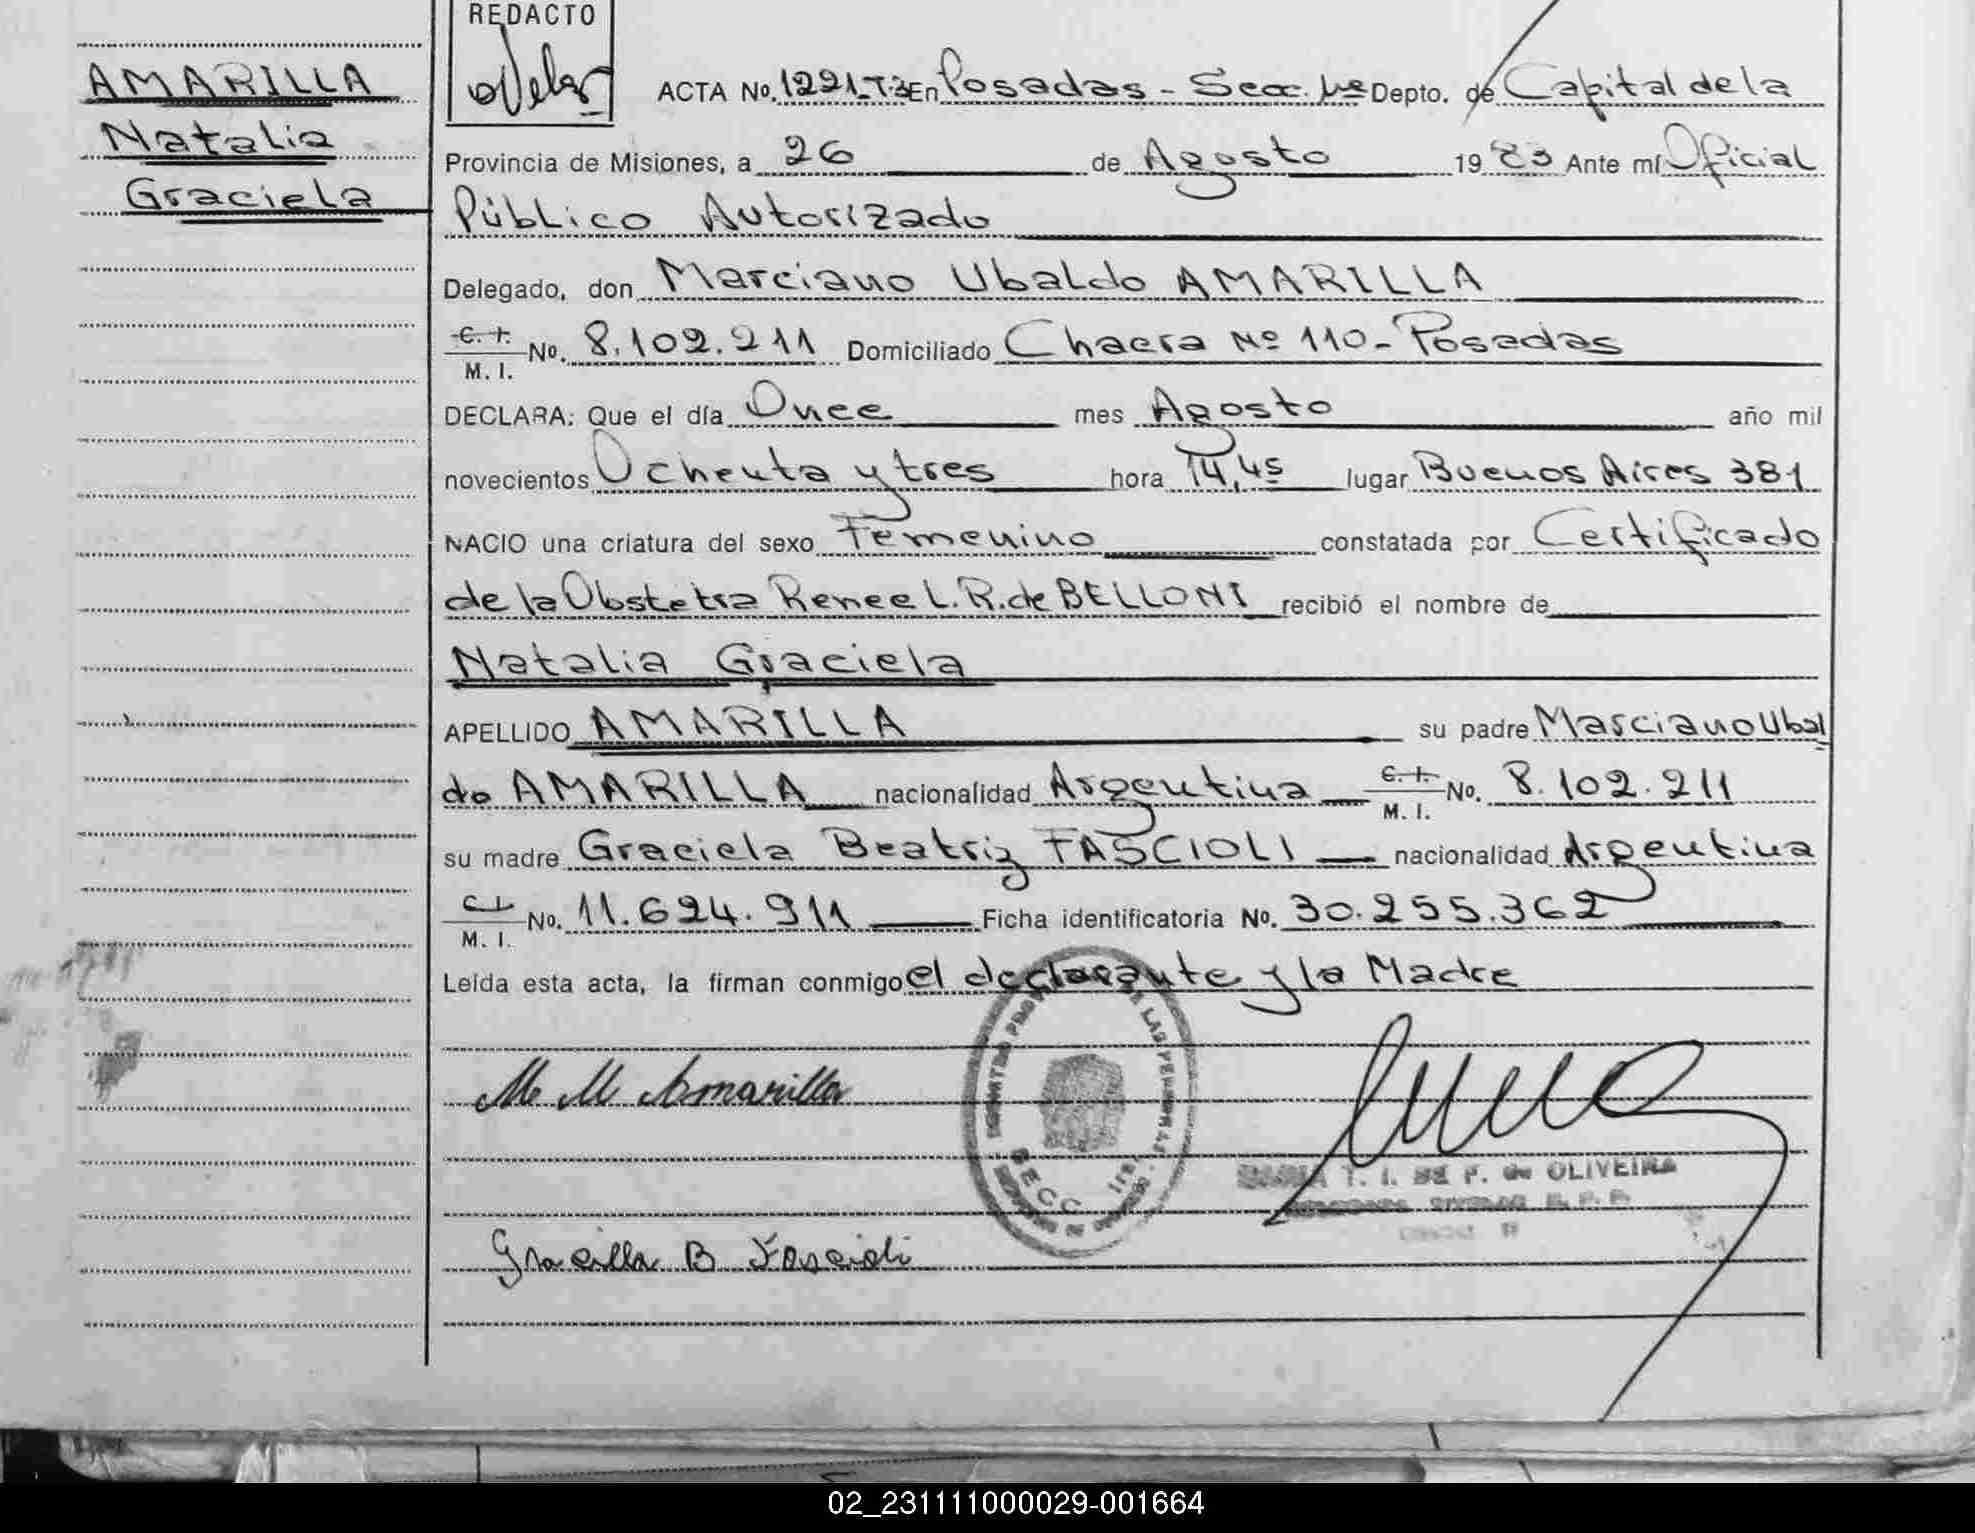 REDACTO
AMARILLA
Natalia
Graciela
ACTA No. 1221-T:3 En Posadas - Secc. 1ra Depto. de Capital de la
Provincia de Misiones, a 26 de Agosto 1983 Ante mí Oficial
Público Autorizado
Delegado, don Marciano Ubaldo AMARILLA
C. I. M. I. No. 8.102.211 Domiciliado Chacra Nº 110 - Posadas
DECLARA: Que el día Once mes Agosto año mil
novecientos Ochenta y tres hora 14,45 lugar Buenos Aires 381
NACIO una criatura del sexo Femenino constatada por Certificado
de la Obstetra Renee L. R. de BELLONI recibió el nombre de
Natalia Graciela
APELLIDO AMARILLA su padre Marciano Ubal
do AMARILLA nacionalidad Argentina C. I. M. I. No. 8.102.211
su madre Graciela Beatriz FASCIOLI nacionalidad Argentina
C. I. M. I. No. 11.624.911 Ficha identificatoria No. 30.255.362
Leída esta acta, la firman conmigo el declarante y la Madre
M. U. Amarilla
SECC. 1ra.
T. I. de F. de OLIVEIRA
Graciela B Fascioli
02_231111000029-001664